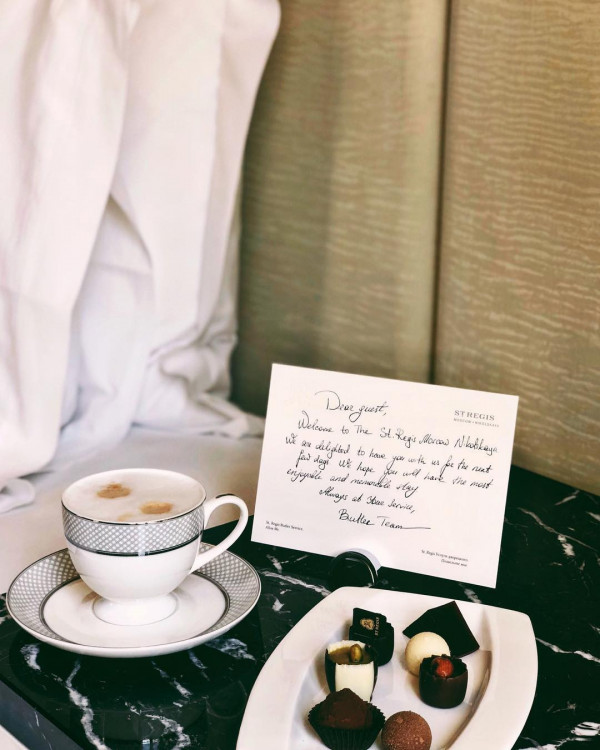 ST REGIS
MOSCOW • NIKOLSKAYA
Dear guest,
Welcome to The St. Regis Moscow Nikolskaya
We are delighted to have you with us for the next
few days. We hope you will have the most
enjoyable and memorable stay
Always at Your Service,
Butler Team
St. Regis Butler Service